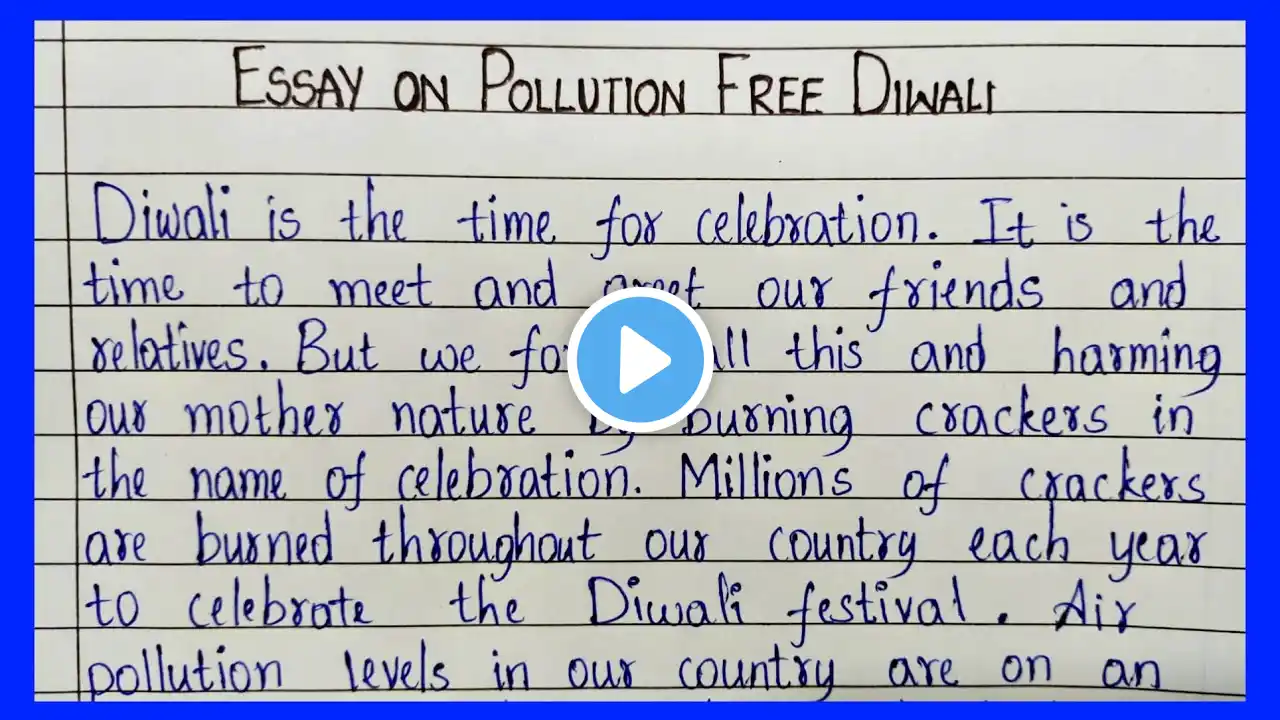 ESSAY ON POLLUTION FREE DIWALI
Diwali is the time for celebration. It is the
time to meet and greet our friends and
relatives. But we all this and harming
our mother nature by burning crackers in
the name of celebration. Millions of crackers
are burned throughout our country each year
to celebrate the Diwali festival. Air
pollution levels in our country are on an